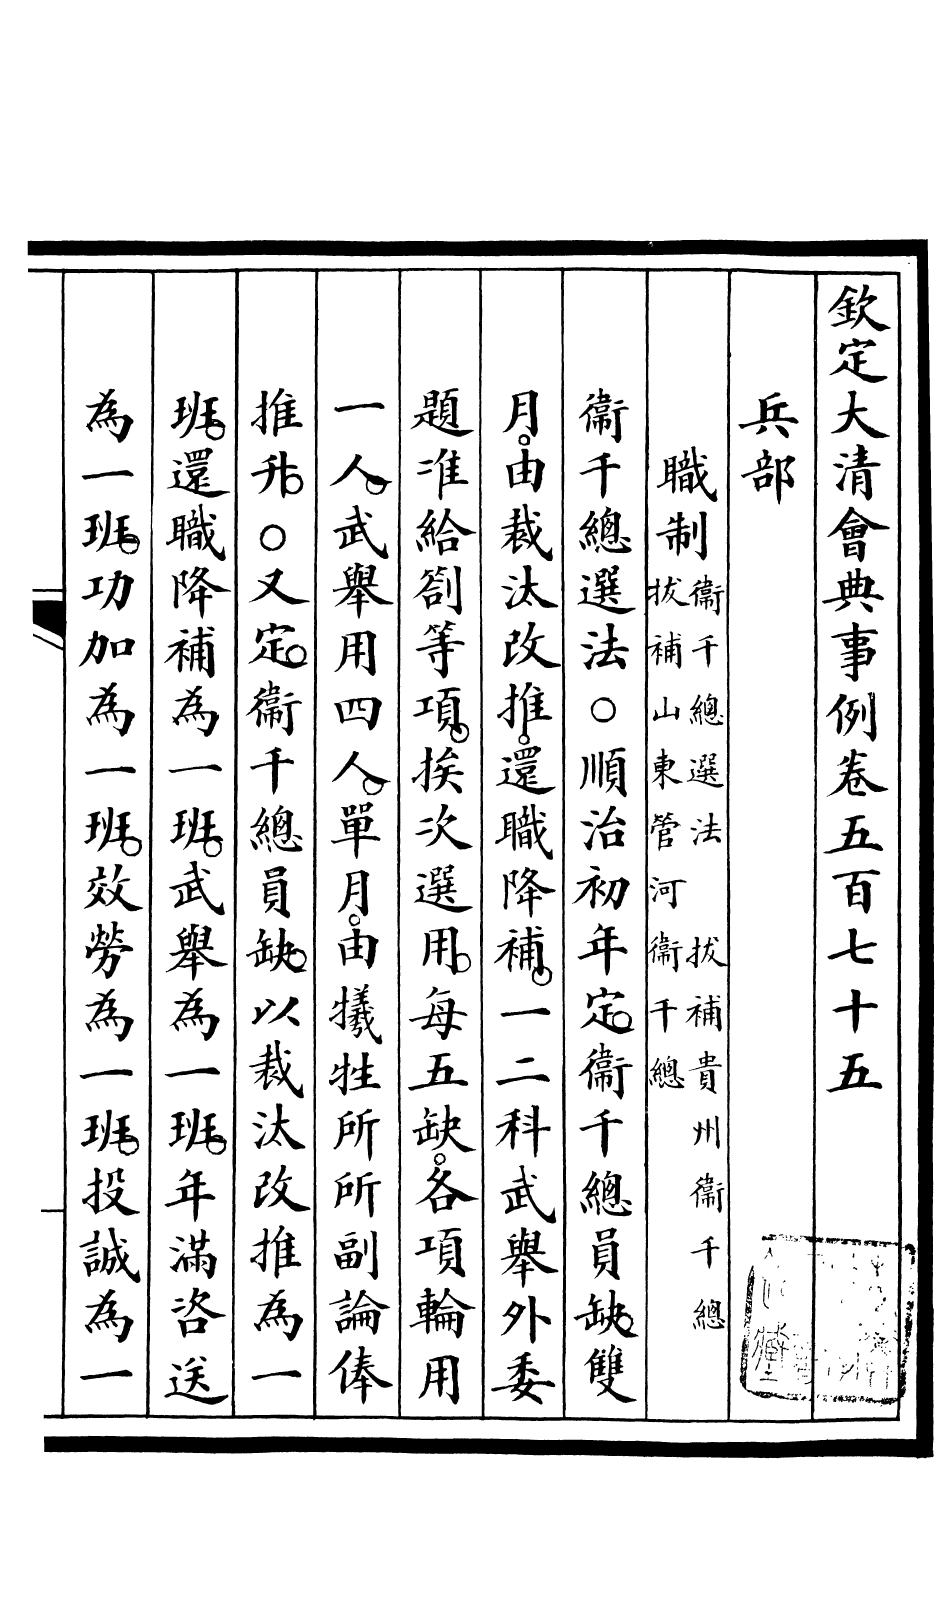 欽定大清會典事例卷五百七十五
兵部
職制 衞千總選法 拔補貴州衞千總
拔補山東管河衞千總
衞千總選法○順治初年定。衞千總員缺。雙
月。由裁汰改推。還職降補。一二科武舉外委
題准給劄等項。挨次選用。每五缺。各項輪用
一人。武舉用四人。單月。由犧牲所所副論俸
推升。○又定。衞千總員缺。以裁汰改推為一
班。還職降補為一班。武舉為一班。年滿咨送
為一班。功加為一班。效勞為一班。投誠為一